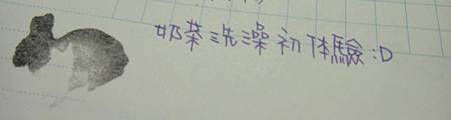 奶茶洗澡初体驗:D